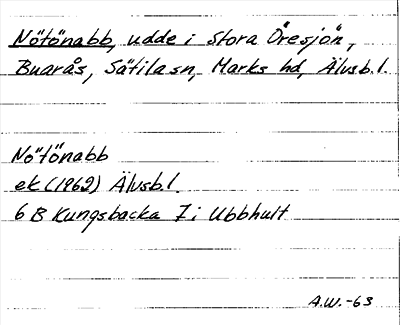 Nötönabb, udde i Stora Öresjön,
Buarås, Sätila sn, Marks hd, Älvsb.l.
Nötönabb
ek (1962) Älvsb.l.
6 B Kungsbacka 7 i Ubbhult
A.W.-63